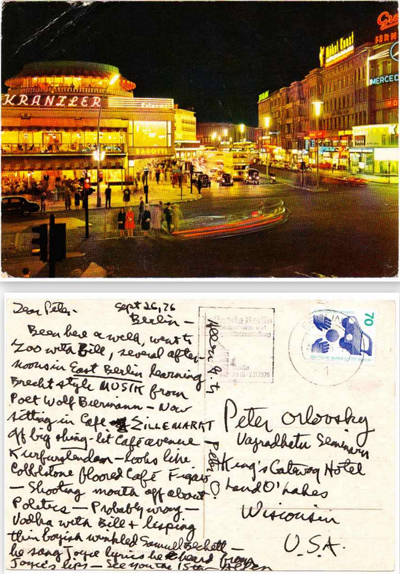 KRANZLER
Möbel Kunst
MERCEDES
Dear Peter -
Sept 26, 76
Berlin -
Been here a week, went to
Zoo with Bill, several after-
noons in East Berlin learning
Brecht style MUSIK from
Poet Wolf Biermann - Now
sitting in Cafe ZILLEMARKT
off big shing-lit Cafe avenue
Kurfurstendam - looks like
Cobblestone floored Café Figaro
- Shooting mouth off about
Politics - Probably wrong -
Vodka with Bill + lisping
thin boyish wrinkled Samuel Beckett -
he sang Joyce lyrics he heard from
Joyce's lips - See you the 15th
Berlin
70
1
Peter Orlovsky
Vajradhatu Seminary
King's Gateway Hotel
Land O' Lakes
Wisconsin
U.S.A.